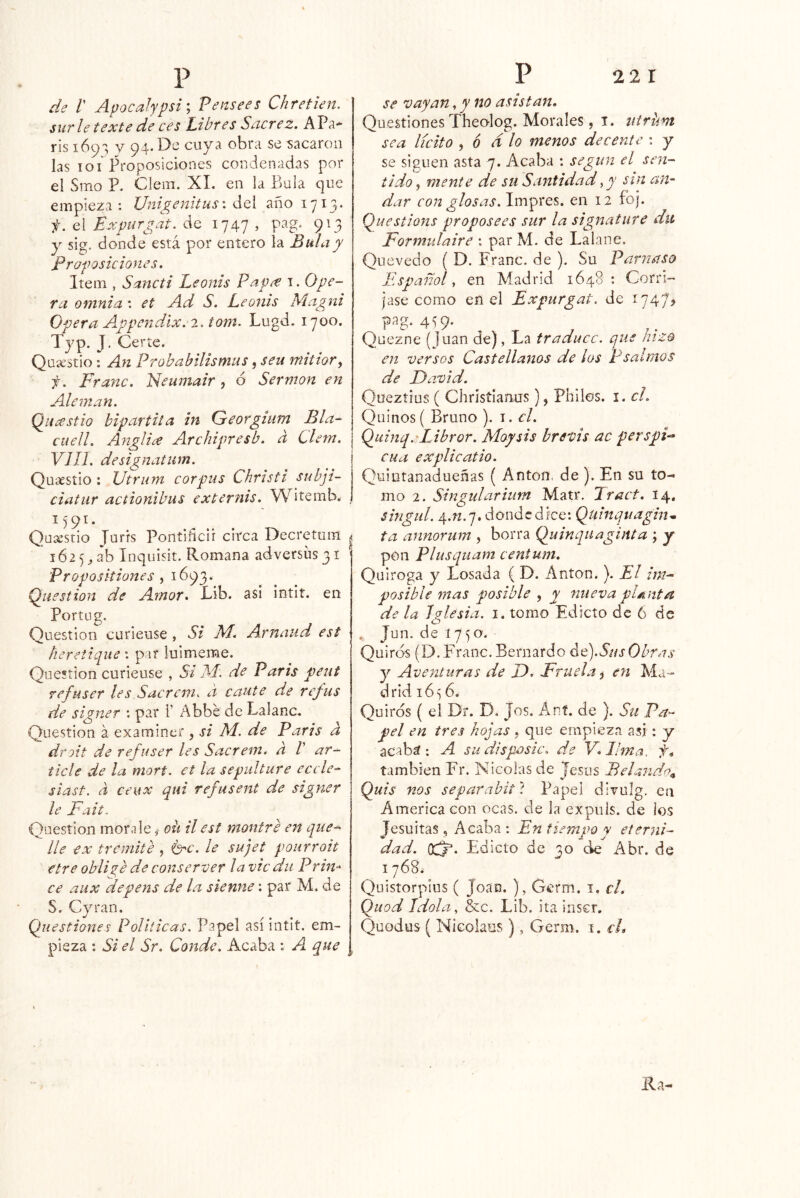 P
de l' Apocalypsi; Pensees Chretien.
sur le texte de ces Libres Sacrez. A Pa-
ris 1693 y 94. De cuya obra se sacaron
las 101 Proposiciones condenadas por
el Smo P. Clem. XI. en la Bula que
empieza: Unigenitus: del año 1713.
ꝟ. el Expurgat. de 1747, pag. 913
y sig. donde está por entero la Bula y
Proposiciones.
Item, Sancti Leonis Papæ 1. Ope-
ra omnia: et Ad S. Leonis Magni
Opera Appendix. 2. tom. Lugd. 1700.
Typ. J. Certe.
Quæstio: An Probabilismus, seu mitior,
ꝟ. Franc. Neumair, ó Sermon en
Aleman.
Quæstio bipartita in Georgium Bla-
cuell. Angliæ Archipresb. à Clem.
VIII. designatum.
Quæstio: Utrum corpus Christi subji-
ciatur actionibus externis. Witemb.
1591.
Quæstio Juris Pontificii circa Decretum
1625, ab Inquisit. Romana adversùs 31
Propositiones, 1693.
Question de Amor. Lib. asi intit. en
Portug.
Question curieuse, Si M. Arnaud est
heretique: par luimeme.
Question curieuse, Si M. de Paris peut
refuser les Sacrem. à caute de refus
de signer: par l' Abbè de Lalanc.
Question à examiner, si M. de Paris à
droit de refuser les Sacrem. à l' ar-
ticle de la mort. et la sepulture eccle-
siast. à ceux qui refusent de signer
le Fait.
Question morale, où il est montrè en que-
lle ex tremitè, &c. le sujet pourroit
etre obligè de conserver la vie du Prin-
ce aux depens de la sienne: par M. de
S. Cyran.
Questiones Politicas. Papel así intit. em-
pieza: Si el Sr. Conde. Acaba: A que
P 221
se vayan, y no asistan.
Questiones Theolog. Morales, 1. utrùm
sea lícito, ó á lo menos decente: y
se siguen asta 7. Acaba: segun el sen-
tido, mente de su Santidad, y sin an-
dar con glosas. Impres. en 12 foj.
Questions proposees sur la signature du
Formulaire: par M. de Lalane.
Quevedo (D. Franc. de). Su Parnaso
Español, en Madrid 1648: Corri-
jase como en el Expurgat. de 1747,
pag. 459.
Quezne (Juan de), La traducc. que hizo
en versos Castellanos de los Psalmos
de David.
Queztius (Christianus), Philos. 1. cl.
Quinos (Bruno). 1. cl.
Quinq. Libror. Moysis brevis ac perspi-
cua explicatio.
Quintanadueñas (Anton. de). En su to-
mo 2. Singularium Matr. Tract. 14.
singul. 4. n. 7. donde dice: Quinquagin-
ta annorum, borra Quinquaginta; y
pon Plusquam centum.
Quiroga y Losada (D. Anton.). El im-
posible mas posible, y nueva planta
de la Iglesia. 1. tomo Edicto de 6 de
Jun. de 1750.
Quirós (D. Franc. Bernardo de). Sus Obras
y Aventuras de D. Fruela, en Ma-
drid 1656.
Quirós (el Dr. D. Jos. Ant. de). Su Pa-
pel en tres hojas, que empieza asi: y
acaba: A su disposic. de V. Ilma. ꝟ.
tambien Fr. Nicolas de Jesus Belando.
Quis nos separabit? Papel divulg. en
America con ocas. de la expuls. de los
Jesuitas, Acaba: En tiempo y eterni-
dad. ☞. Edicto de 30 de Abr. de
1768.
Quistorpius (Joan.), Germ. 1. cl.
Quod Idola, &c. Lib. ita inscr.
Quodus (Nicolaus), Germ. 1. cl.
Ra-